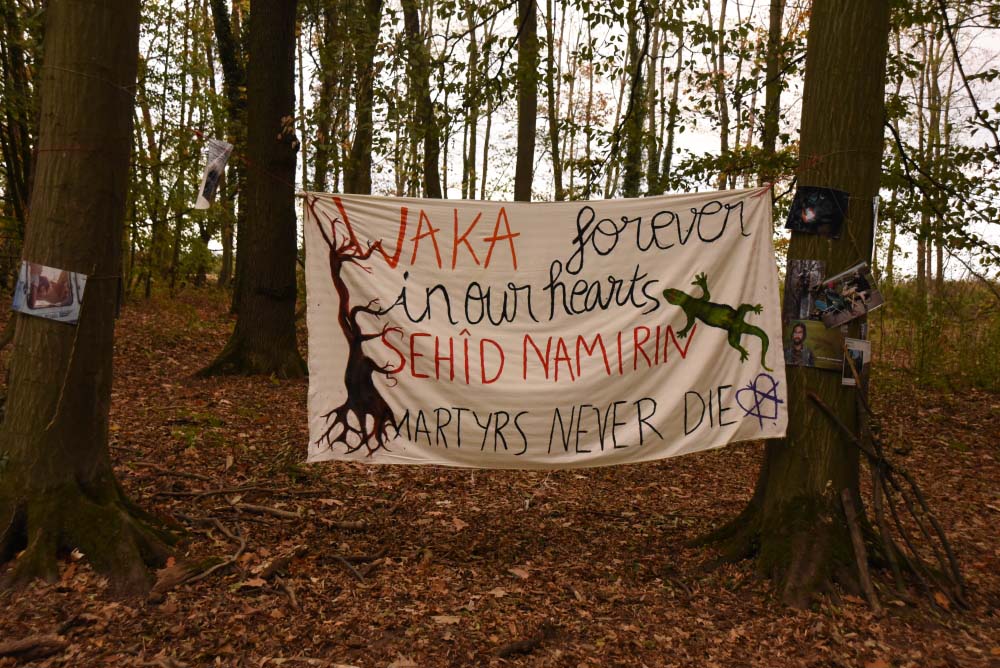 WAKA forever
in our hearts
SEHÎD NAMIRIN
MARTYRS NEVER DIE